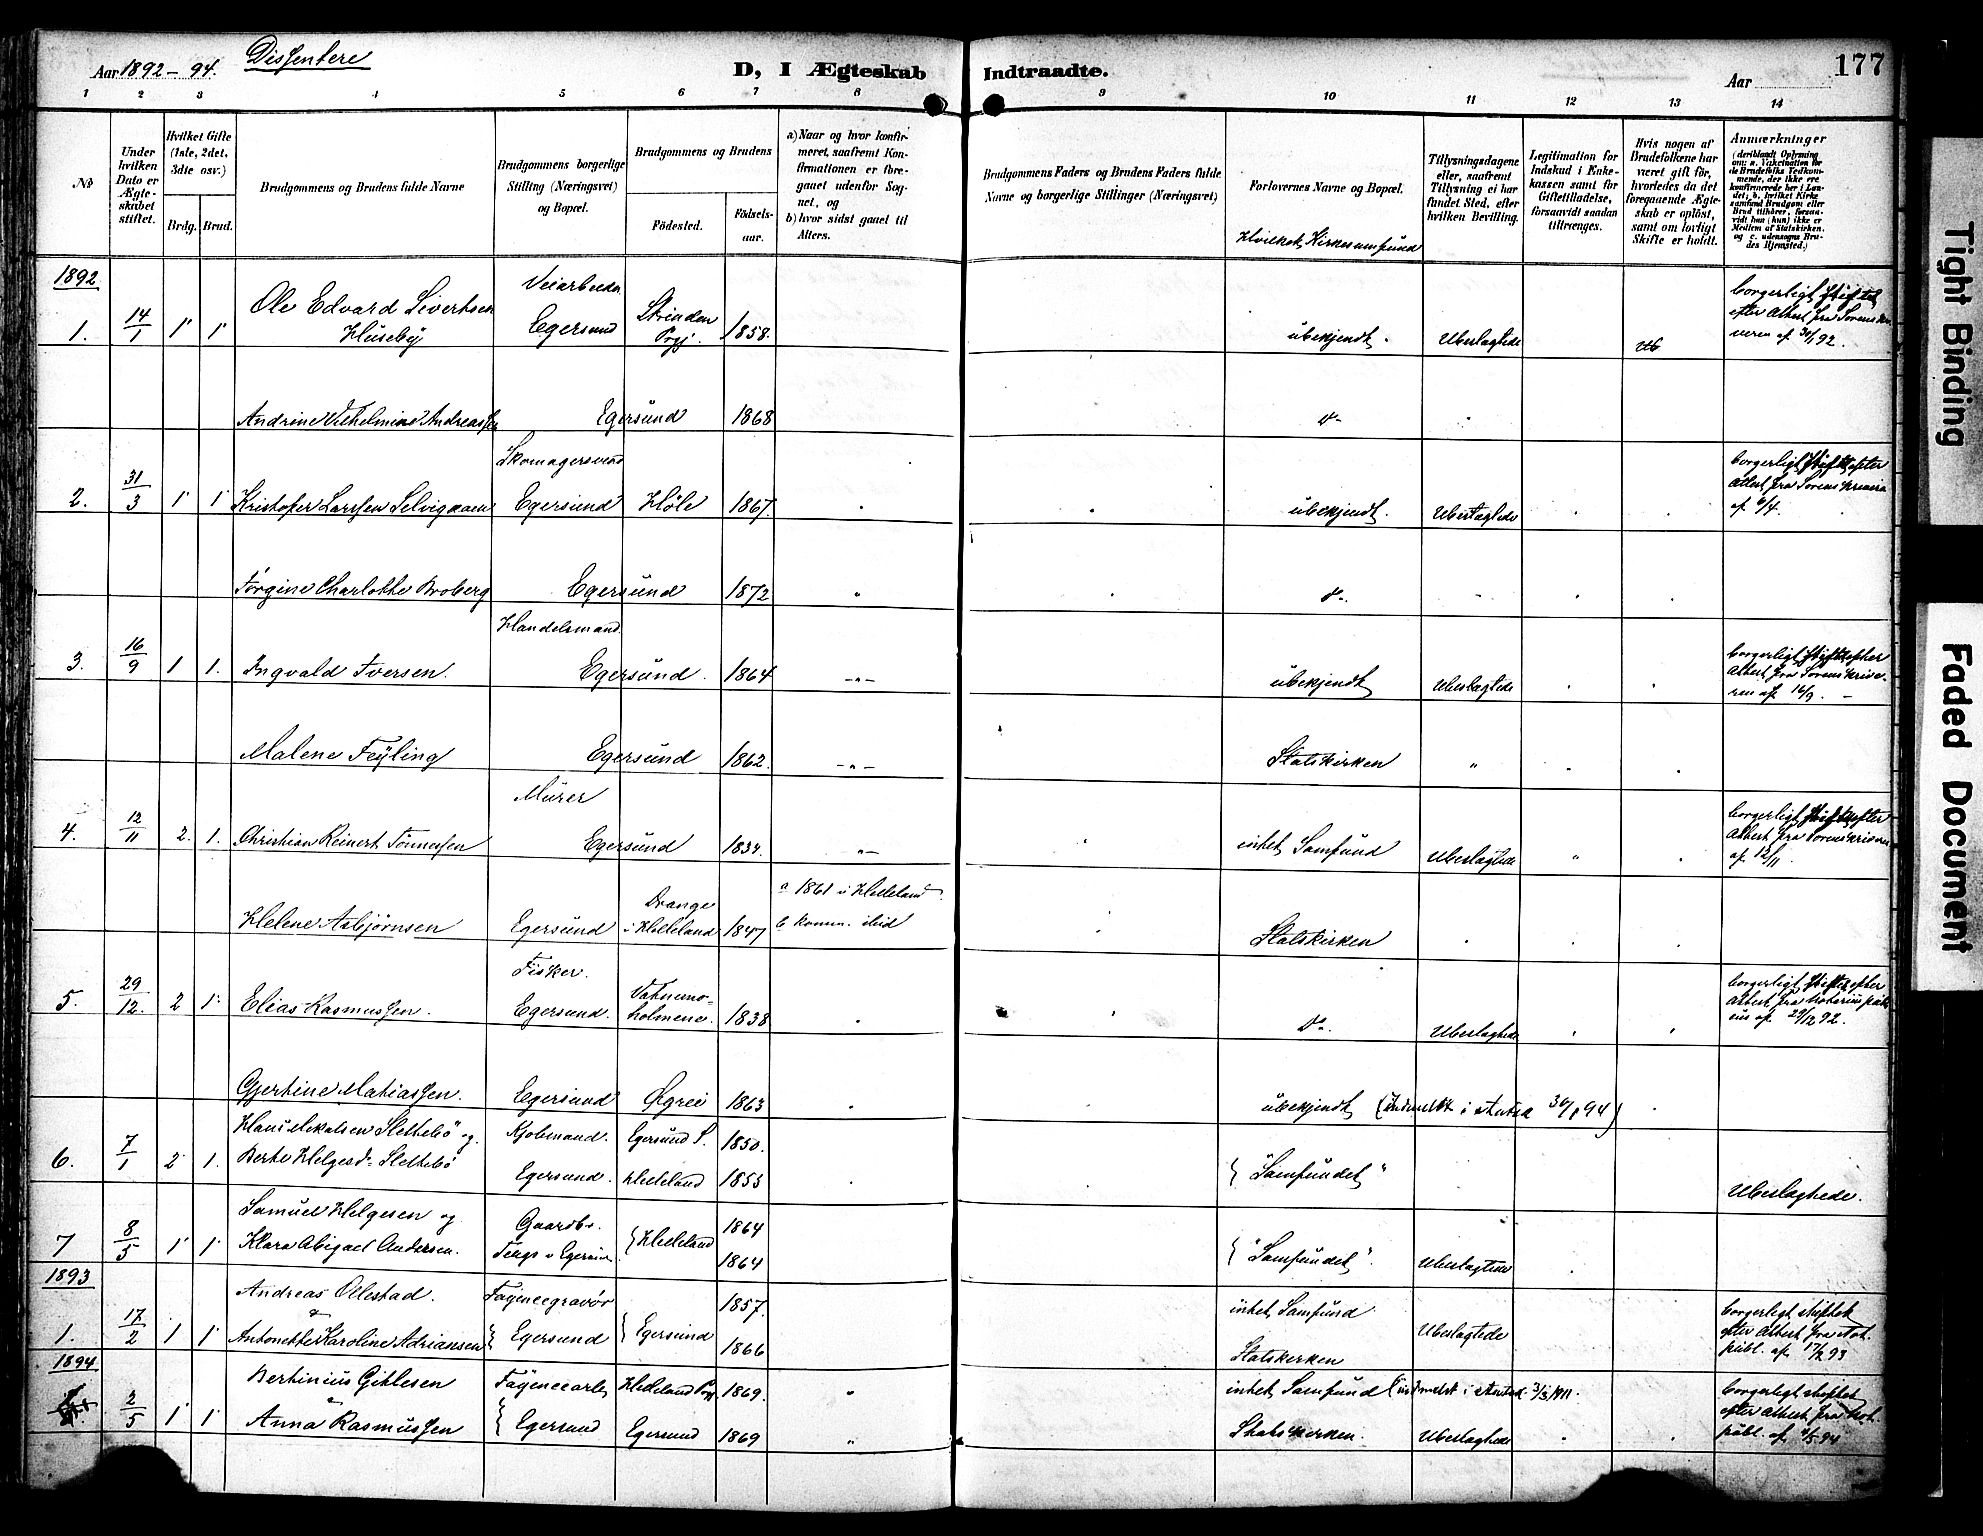 Aar 1892 - 94. Dissentere
D, I Ægteskab Indtraadte.
Aar 177
1 2 3 4 5 6 7 8 9 10 11 12 13 14
No
Under hvilken Dato er Ægteskabet stiftet.
Hvilket Gifte (1ste, 2det, 3die osv.)
Brdg. Brud.
Brudgommens og Brudens fulde Navne
Brudgommens borgerlige Stilling (Næringsvei) og Bopæl.
Brudgommens og Brudens
Fødested. Fødselsaar.
a) Naar og hvor konfirmeret, saafremt Konfirmationen er foregaaet udenfor Sognet, og
b) hvor sidst gaaet til Alters.
Brudgommens Faders og Brudens Faders fulde Navne og borgerlige Stillinger (Næringsvei)
Forlovernes Navne og Bopæl.
Hvilket Kirkesamfund
Tillysningsdagene eller, saafremt Tillysning ei har fundet Sted, efter hvilken Bevilling.
Legitimation for Indskud i Enkekassen samt for Giftetilladelse, forsaavidt saadan tiltrænges.
Hvis nogen af Brudefolkene har været gift før, hvorledes da det foregaaende Ægteskab er opløst, samt om lovligt Skifte er holdt.
Anmærkninger
(deriblandt Oplysning om: a. Vakcination for de Brudefolks Vedkommende, der ikke ere konfirmerede her i Landet; b. hvilket Kirkesamfund Brudgom eller Brud tilhører, forsaavidt han (hun) ikke er Medlem af Statskirken, og c. udensogns Brudes Hjemsted.)
1892
1. 14/1 1 1 Ole Edvard Sivertsen Huseby Veiarbeider Egersund Strinden Prgj. 1858. ubekjendt. Ubeslagtede borgerligt stiftet efter Attest fra Sorenskriveren af 30/1 92.
Andrine Vilhelmine Andreassen Egersund 1868 do
2. 31/3 1 1 Kristofer Larssen Selvigaaen Skomagersvend Egersund Høle 1867. ubekjendt. Ubeslagtede borgerligt stiftet efter Attest fra Sorenskriveren af 6/4.
Jørgine Charlotte Broberg Egersund 1872 do
3. 16/9 1 1. Ingvald Iversen. Handelsmand. Egersund. 1864 -"- ubekjendt Ubeslægtede borgerligt stiftet efter Attest fra Sorenskriveren af 16/9. -
Malene Feyling Egersund 1862. -"- Statskirken "
4. 12/11 2. 1. Christian Reinert Tønnessen Murer Egersund 1834. "- intet Samfund Ubeslægtede borgerligt stiftet efter Attest fra Sorenskriveren af 12/11.
Helene Asbjørnsen Egersund Drange i Helleland 1847 a 1861 i Helleland. b komm. ibid Statskirken
5. 29/12. 2 1. Elias Rasmussen. Fisker. Egersund. Vatnemoholmene. 1838 do Ubeslagtede borgerligt stiftet efter Attest fra Notarius publicus af 29/12 92.
Gjertine Matiassen. Egersund Øgrei 1863 ubekjendt (indmeldt i statsk 30/1 94)
6. 7/1 2 1. Hans Slettebö og Berte Helgesd. Slettebö Kjøbmand. Egersund. Egersund S. Helleland 1850. 1853 "Samfundet" Ubeslagtede.
7 8/5 1 1 Samuel Helgesen og Klara Abigael Andersen. Gaardbr. Tengs i Egersund Helleland 1864 1864 "Samfundet". Ubeslagtede
1893
1. 17/2 1 1 Andreas Ollestad. & Antonette Karoline Adriansen Fayencegravør Egersund Egersund 1857. 1866 intet Samfund Statskirken Ubeslagtede borgerligt stiftet efter Attest fra Not. publ. af 17/2 93
1894
2/5 1 1 Bertinius Gitlesen & Anna Rasmussen Fayencearb. Egersund Helleland Prgj Egersund 1869. 1869 " intet Samfund (indmeldt i statsk 3/3 1911. Statskirken. Ubeslagtede borgerligt stiftet efter Attest fra Not. publ. af 2/5 94
Tight Binding
Faded Document